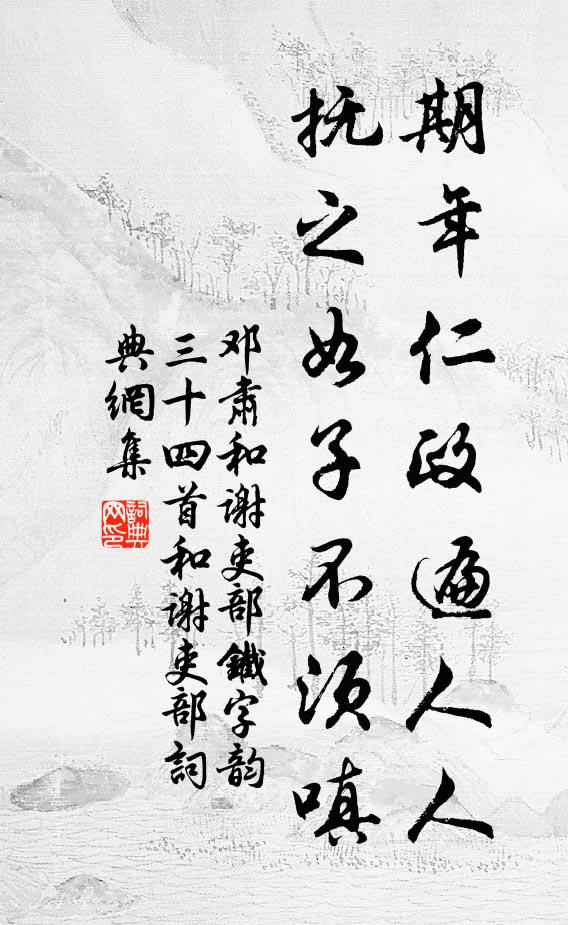 期年仁政遍人人
抚之如子不须嗔
邓肃和谢吏部鐵字韵
三十四首和谢吏部詞
典網集
詞典
网印